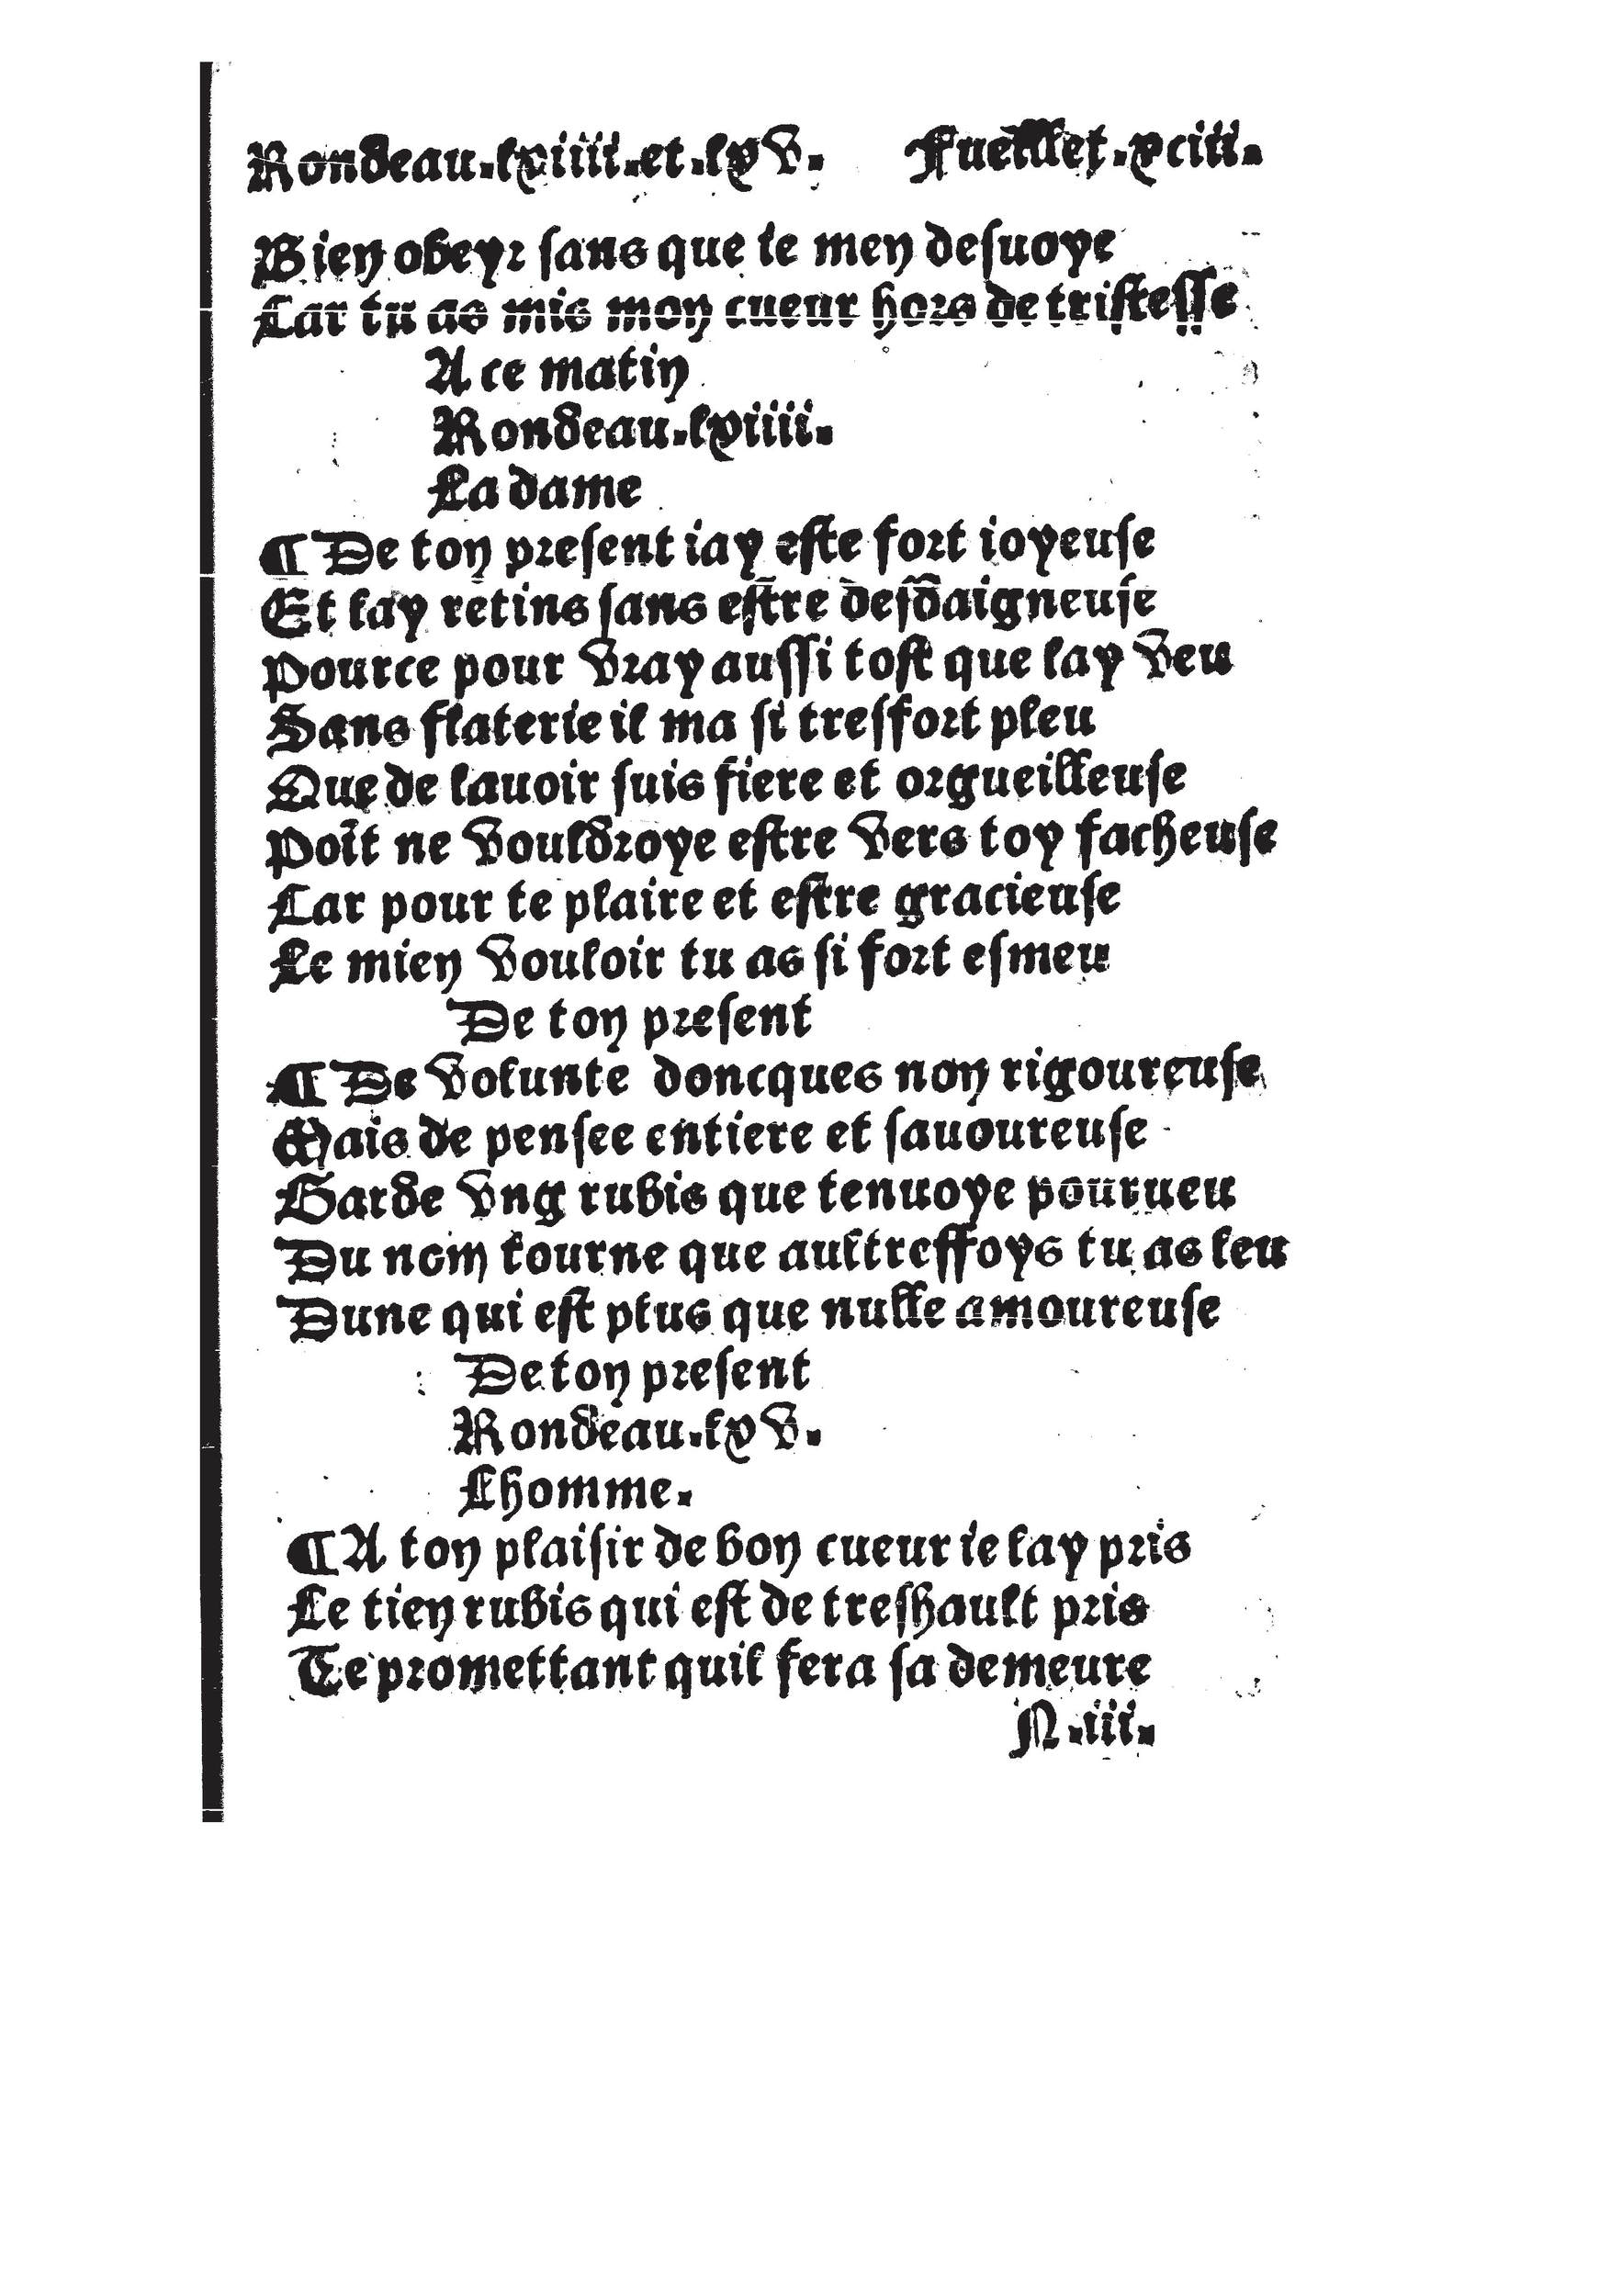 Rondeau.lxiiii.et.lxv. Fueillet.xciii.
Bien obeyr sans que ie men desuoye
Car tu as mis mon cueur hors de tristesse
A ce matin
Rondeau.lxiiii.
La dame
¶ De ton present iay este fort ioyeuse
Et lay retins sans estre desdaigneuse
Pource pour vray aussi tost que lay veu
Sans flaterie il ma si tresfort pleu
Que de lauoir suis fiere et orgueilleuse
Poĩt ne vouldroye estre vers toy facheuse
Car pour te plaire et estre gracieuse
Le mien vouloir tu as si fort esmeu
De ton present
¶ De volunte doncques non rigoureuse
Mais de pensee entiere et sauoureuse
Garde vng rubis que tenuoye pourueu
Du nom tourne que aultreffoys tu as leu
Dune qui est plus que nulle amoureuse
De ton present
Rondeau.lxv.
Lhomme.
¶ A ton plaisir de bon cueur ie lay pris
Le tien rubis qui est de treshault pris
Te promettant quil fera sa demeure
N.iii.